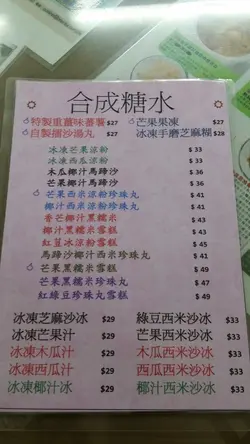 合成糖水
特製重薑味蕃薯 $27 芒果果凍 $27
自製擂沙湯丸 $27 冰凍手磨芝麻糊 $28
冰凍芒果涼粉 $33
冰凍西瓜涼粉 $33
木瓜椰汁馬蹄沙 $36
芒果椰汁馬蹄沙 $36
芒果西米涼粉珍珠丸 $41
椰汁西米涼粉珍珠丸 $41
香芒椰汁黑糯米 $43
椰汁黑糯米雪糕 $43
紅荳冰涼粉雪糕 $45
馬蹄沙椰汁西米珍珠丸 $41
芒果黑糯米雪糕 $49
芒果黑糯米珍珠丸 $47
紅綠豆珍珠丸雪糕 $49
冰凍芝麻沙冰 $29 綠豆西米沙冰 $33
冰凍芒果汁 $29 芒果西米沙冰 $33
冰凍木瓜汁 $29 木瓜西米沙冰 $33
冰凍西瓜汁 $29 西瓜西米沙冰 $33
冰凍椰汁冰 $29 椰汁西米沙冰 $33